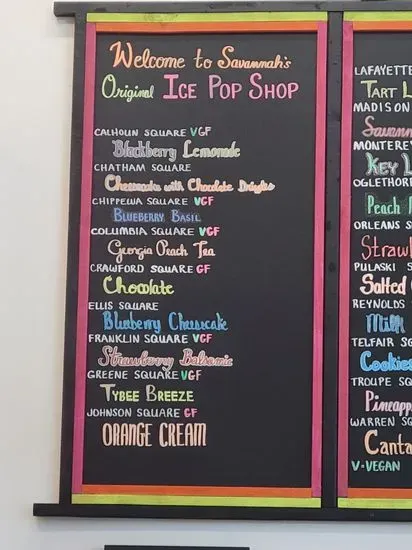 Welcome to Savannah's
Original Ice Pop Shop
CALHOUN SQUARE VGF
Blackberry Lemonade
CHATHAM SQUARE
Cheesecake with Chocolate Drizzles
CHIPPEWA SQUARE VGF
BLUEBERRY BASIL
COLUMBIA SQUARE VGF
Georgia Peach Tea
CRAWFORD SQUARE GF
Chocolate
ELLIS SQUARE
Blueberry Cheesecake
FRANKLIN SQUARE VGF
Strawberry Balsamic
GREENE SQUARE VGF
TYBEE BREEZE
JOHNSON SQUARE GF
ORANGE CREAM
LAFAYETTE
TART L
MADISON
Savann
MONTEREY
KEY L
OGLETHOR
Peach
ORLEANS S
Straw
PULASKI S
Salted
REYNOLDS
Milk
TELFAIR SQ
Cookies
TROUPE SQ
Pineapp
WARREN SQ
Canta
V-VEGAN